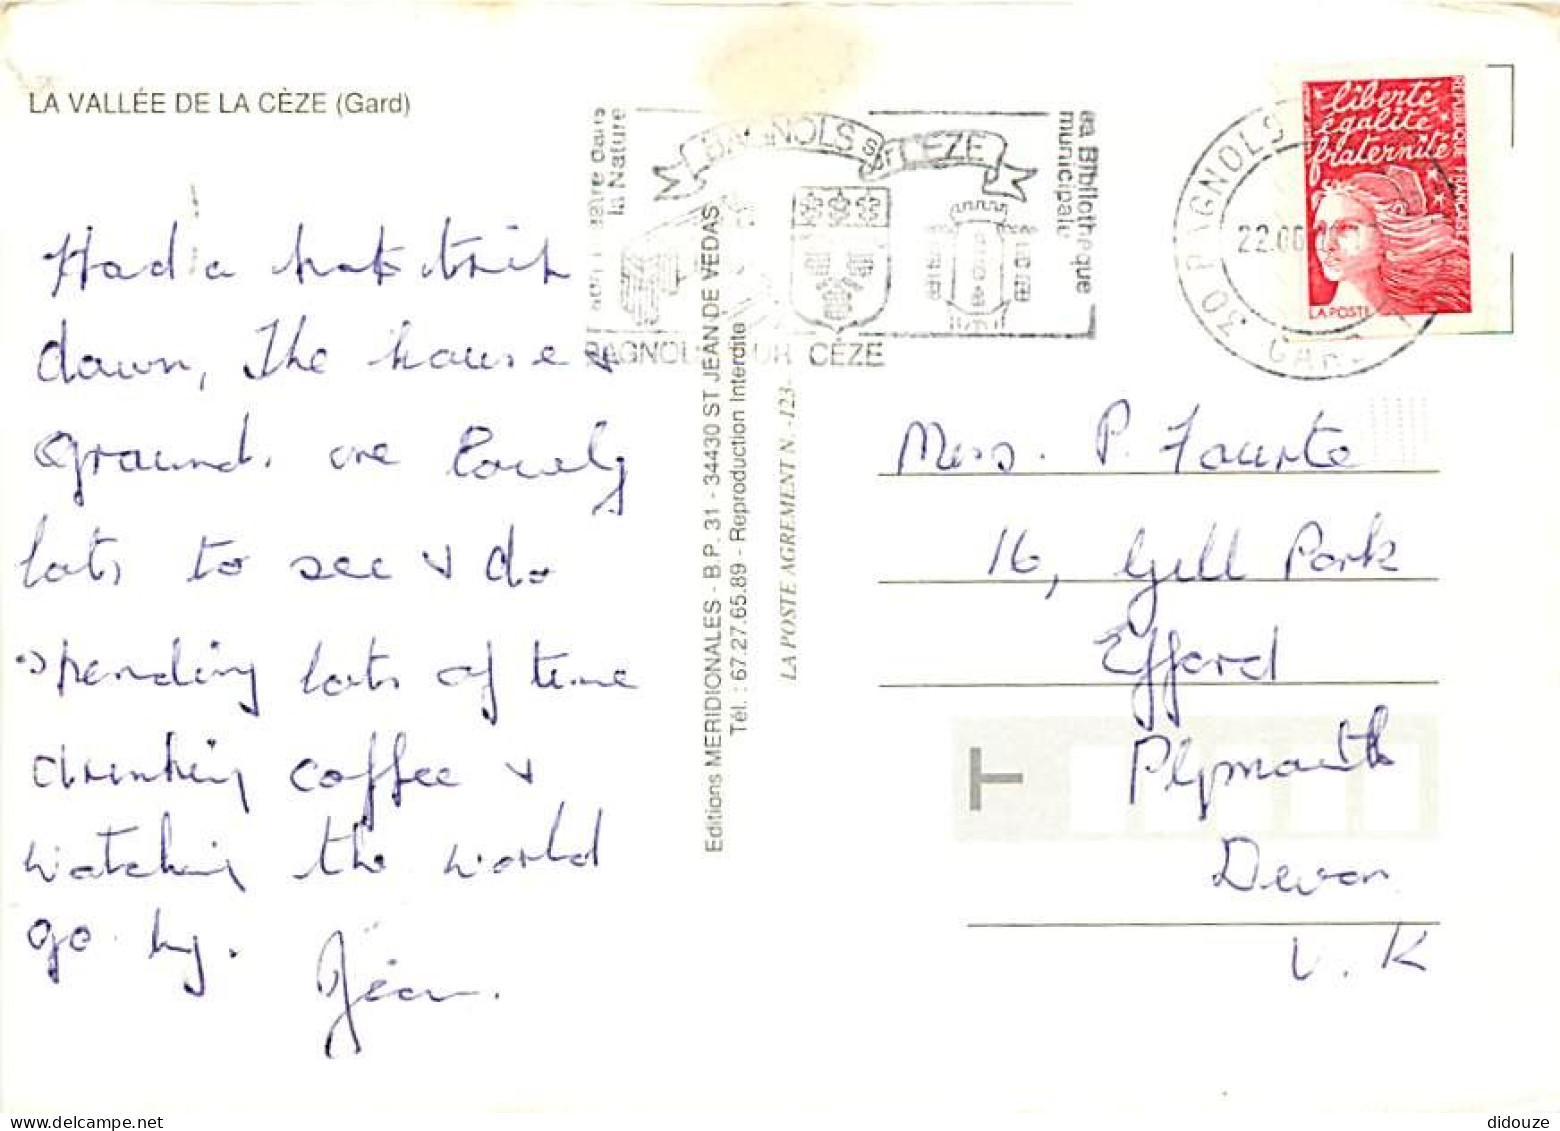 LA VALLÉE DE LA CÈZE (Gard)
Had a hot trip
down, The house &
grounds are lovely
lots to see & do
spending lots of time
drinking coffee &
watching the world
go by. Jean.
Editions MERIDIONALES - B.P. 31 - 34430 ST JEAN DE VEDAS
Tél. : 67.27.65.89 - Reproduction Interdite
LA POSTE AGREMENT N. -123-
la Nature
BAGNOLS S/ CEZE
la Bibliothèque
municipale
BAGNOLS SUR CÈZE
30 BAGNOLS
22.06
GARD
liberté
égalité
fraternité
REPUBLIQUE FRANÇAISE
LA POSTE
Mrs. P.
16, Gill Park
Efford
Plymouth
Devon
U.K
T
didouze